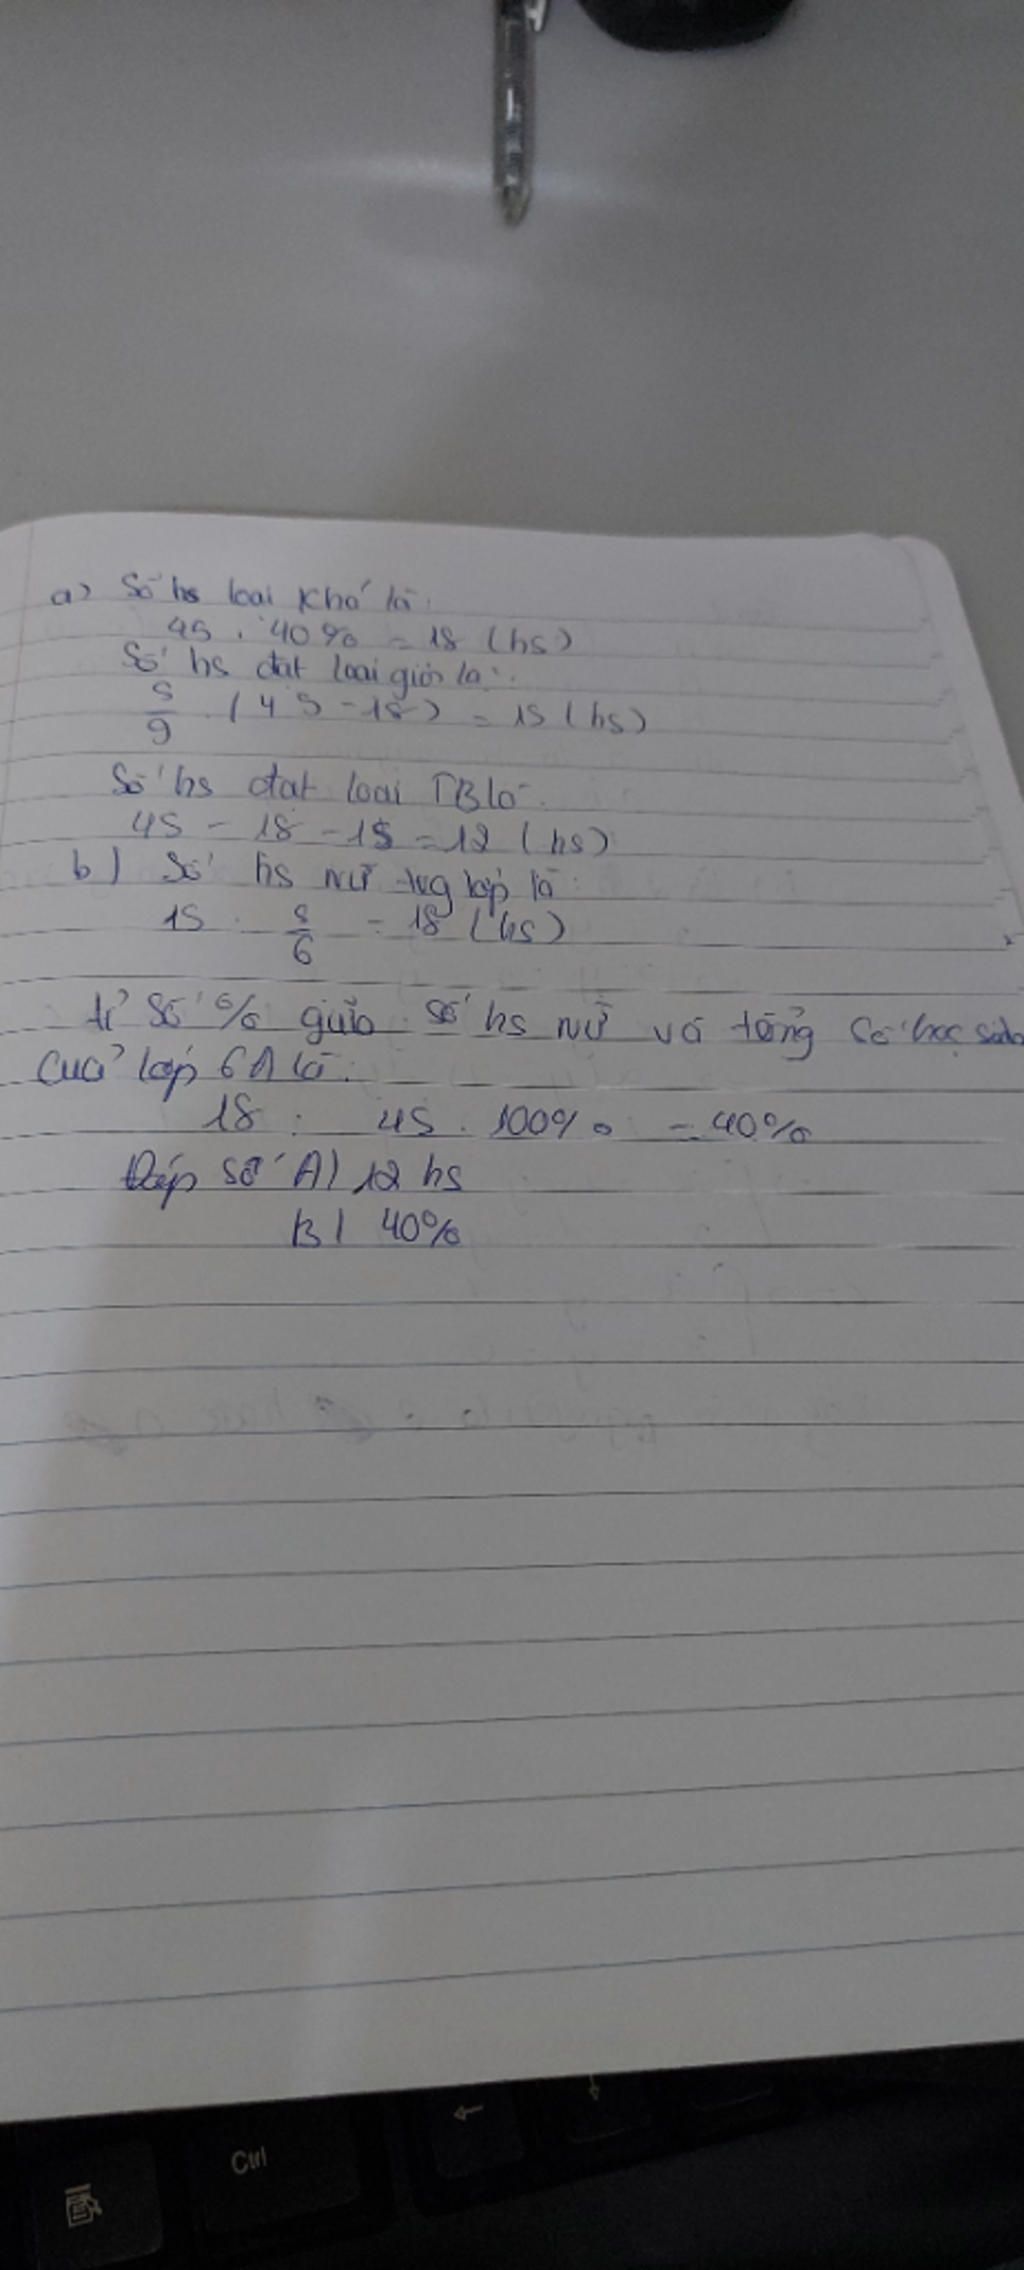 a) Số hs loại khá là:
45 . 40% = 18 (hs)
Số hs đạt loại giỏi là:
5/9 . (45 - 18) = 15 (hs)
Số hs đạt loại TB là:
45 - 18 - 15 = 12 (hs)
b) Số hs nữ trg lớp là:
15 : 5/6 = 18 (hs)
tỉ số % giữa số hs nữ và tổng số học sinh
của lớp 6A là:
18 : 45 . 100% = 40%
Đáp số A) 12 hs
B) 40%
Ctrl